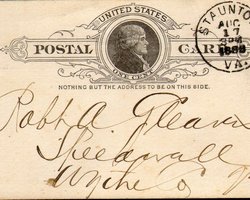 UNITED STATES
POSTAL CARD
ONE CENT
NOTHING BUT THE ADDRESS TO BE ON THIS SIDE.
STAUNTON
AUG
17
VA.
Robt A. Gleaves
Speedwell
Wythe Co